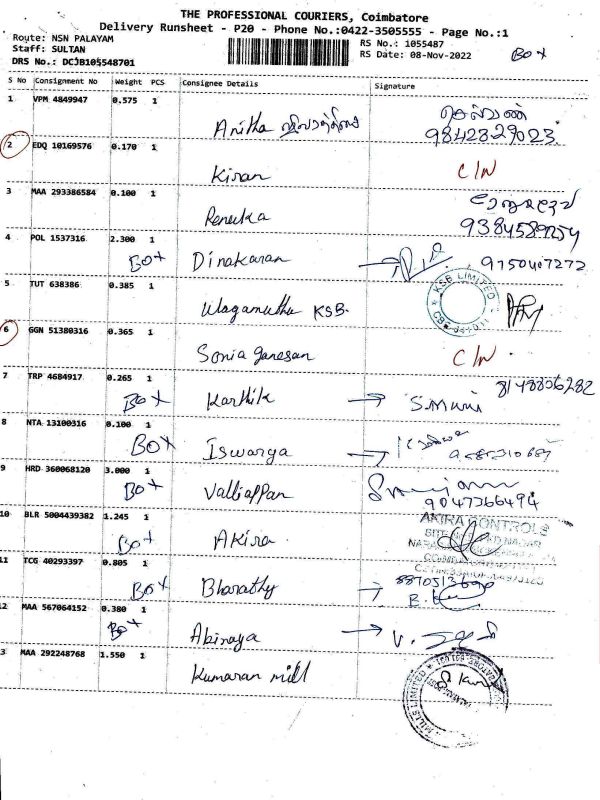 THE PROFESSIONAL COURIERS, Coimbatore
Delivery Runsheet - P20 - Phone No.:0422-3505555 - Page No.:1
Route: NSN PALAYAM RS No.: 1055487
Staff: SULTAN RS Date: 08-Nov-2022 BOX
DRS No.: DCJB105548701
S No Consignment No Weight PCS Consignee Details Signature
1 VPM 4849947 0.575 1
Anitha
9842829023
2 EDQ 10169576 0.170 1
Kiran C/N
3 MAA 293386584 0.100 1
Renuka
4 POL 1537316 2.300 1
BOX Dinakaran 9750407272
5 TUT 638386 0.385 1
Ulagamuthu KSB. KSB LIMITED
6 GGN 51380316 0.365 1
Sonia Ganesan C/N
7 TRP 4684917 0.265 1 8148836282
BOX Karthik S.Muni
8 NTA 13100316 0.100 1
BOX Iswarya
9 HRD 360068120 3.000 1
BOX Valliappan
9047366494
10 BLR 5004439382 1.245 1 AKIRA CONTROLS
BOX Akira
11 TCG 40293397 0.805 1
BOX Bharathy
12 MAA 567064152 0.380 1
BOX Abinaya
3 MAA 292248768 1.550 1
Kumaran mill
MILLS LIMITED